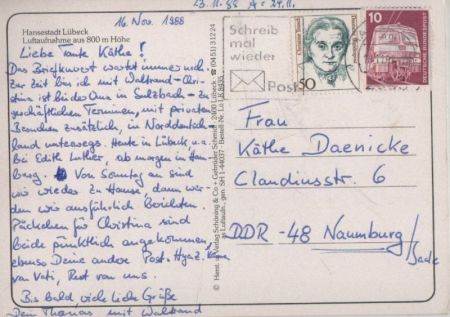 23.11.88 A: 24.11.
16. Nov. 1988
Hansestadt Lübeck
Luftaufnahme aus 800 m Höhe
Liebe Tante Käthe!
Das Briefkuvert wartet immer noch.
Zur Zeit bin ich mit Waltraud - Chri-
stine ist bei der Oma in Sulzbach - zu
geschäftlichen Terminen, mit privaten
Besuchen zusätzlich, in Norddeutsch-
land unterwegs. Heute in Lübeck u.a.
bei Edith Luther, ab morgen in Ham-
burg. Von Sonntag an sind
wir wieder zu Hause, dann wer-
den wir ausführlich berichten.
Päckchen für Christina sind
beide pünktlich angekommen,
ebenso Deine andere Post. Hyaz.
von Vati, Rest von uns.
Bis bald viele liebe Grüße
Dein Thomas mit Waltraud
Schöning & Co + Gebrüder Schmidt 2400 Lübeck ☎ (0451) 31224
Schreib
mal
wieder
Post
50
10
DEUTSCHE BUNDESPOST
Frau
Käthe Daenicke
Claudiusstr. 6
DDR - 48 Naumburg/
Saale